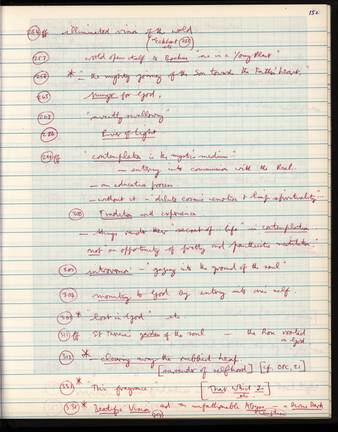 152
256 ff illuminated vision of the world
(Eckhart 255)
257 world opens itself to Boehme "as in a Young Plant"
258 * "the mighty journey of the Son towards the Father's heart."
265 hunger for God.
268 "sweetly swallowing"
286 River of Light
299 ff "contemplation is the mystic's medium"
— entering into communion with the Real.
— an educative process
— without it – 'dilute cosmic emotion & limp spirituality'
300 Tradition and experience
— things render their "secret of life" in contemplation
not an opportunity of pretty and pantheistic meditation.
303 introversion – "gazing into the ground of the soul"
304 mounting to God by entering into one self.
307 * "lost in God" etc
311 ff St Teresa's garden of the soul — the rose rooted in God
313 * – clearing away the rubbish heap.
[surrender of selfhood] [cf. OTC, 21]
331 * "This fragrance" [That Which Is]
335 * Beatific Vision and an unfathomable Abyss – Divine Dark